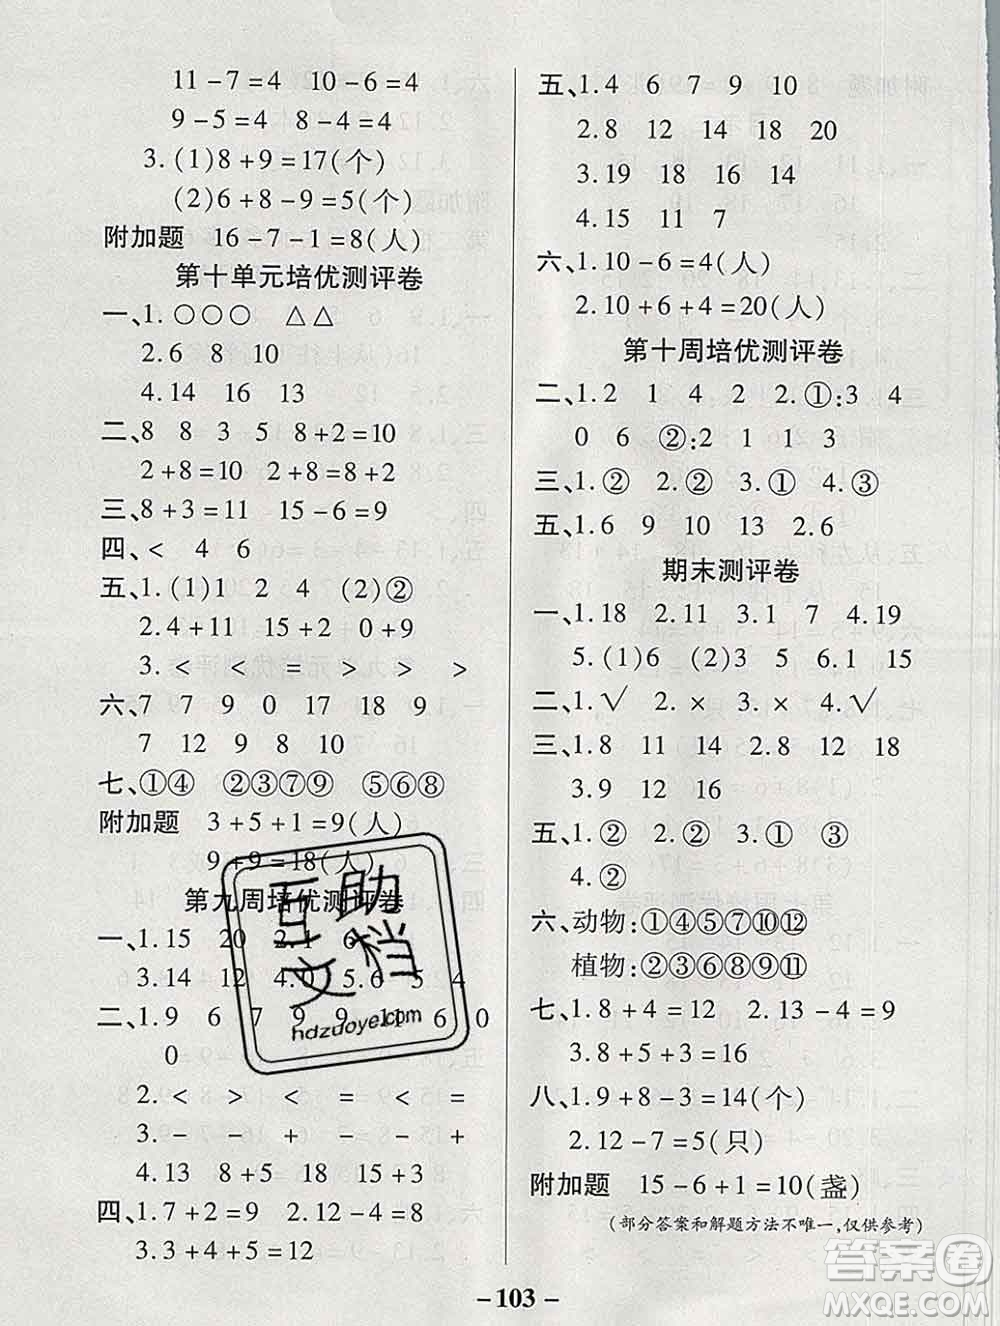 11-7=4　10-6=4
9-5=4　8-4=4
3.(1)8+9=17(个)
(2)6+8-9=5(个)
附加题　16-7-1=8(人)
第十单元培优测评卷
一、1.○○○　△△
2.6　8　10
4.14　16　20
二、8　8　3　5　8+2=10
2+8=10　8+2=8+2
三、8+3=11　15-6=9
四、<　4　6
五、1.(1)1　2　4　(2)②
2.4+11　15+2　0+9
3.<　<　=　>　>　>
六、7　7　9　0　17　18　9
7　12　9　8　10
七、①④　②③⑦⑨　⑤⑥⑧
附加题　3+5+1=9(人)
9+9=18(人)
第九周培优测评卷
一、1.15　20　2.1　6
3.14　12　4.0　5　4
二、1.9　6　7　9　9　1　6　0
0
2.<　>　<　=　<　=
3.+　-　-　-　-　+
4.13　8+5　18　15+3
四、1.7+2=9　2.12-6=6
3.3+4+5=12
五、1.4　6　7　9　10
2.8　12　14　18　20
3.19　18　16　14
4.15　11　7
六、1.10-6=4(人)
2.10+6+4=20(人)
第十周培优测评卷
二、1.2　1　4　2　2.①:3　4
0　6　②:2　1　1　3
三、1.②　2.②　3.①　4.③
五、1.6　9　10　13　2.6
期末测评卷
一、1.18　2.11　3.1　7　4.19
5.(1)6　(2)3　5　6.1　15
二、1.√　2.×　3.×　4.√
三、1.8　11　14　2.8　12　18
3.9　12　16
五、1.②　2.②　3.①　③
4.②
六、动物:①④⑤⑦⑩⑫
植物:②③⑥⑧⑨⑪
七、1.8+4=12　2.13-4=9
3.8+5+3=16
八、1.9+8-3=14(个)
2.12-7=5(只)
附加题　15-6+1=10(盏)
(部分答案和解题方法不唯一,仅供参考)
-103-
互助
文档
hdzuoye.com
答案卷
MXQE.COM